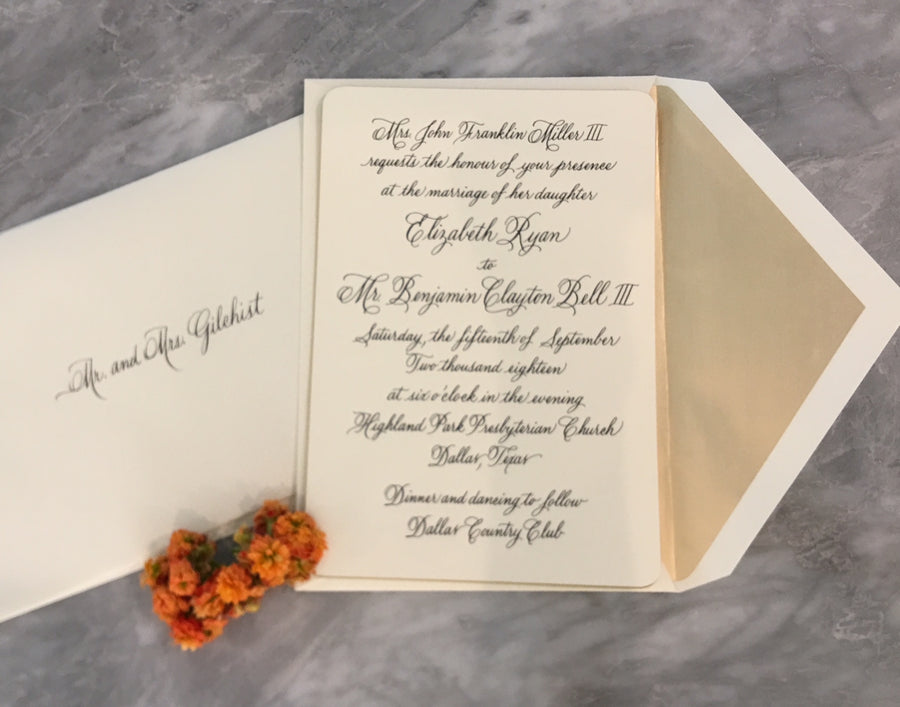 Mr. and Mrs. Gilchist
Mrs. John Franklin Miller III
requests the honour of your presence
at the marriage of her daughter
Elizabeth Ryan
to
Mr. Benjamin Clayton Bell III
Saturday, the fifteenth of September
Two thousand eighteen
at six o'clock in the evening
Highland Park Presbyterian Church
Dallas, Texas
Dinner and dancing to follow
Dallas Country Club